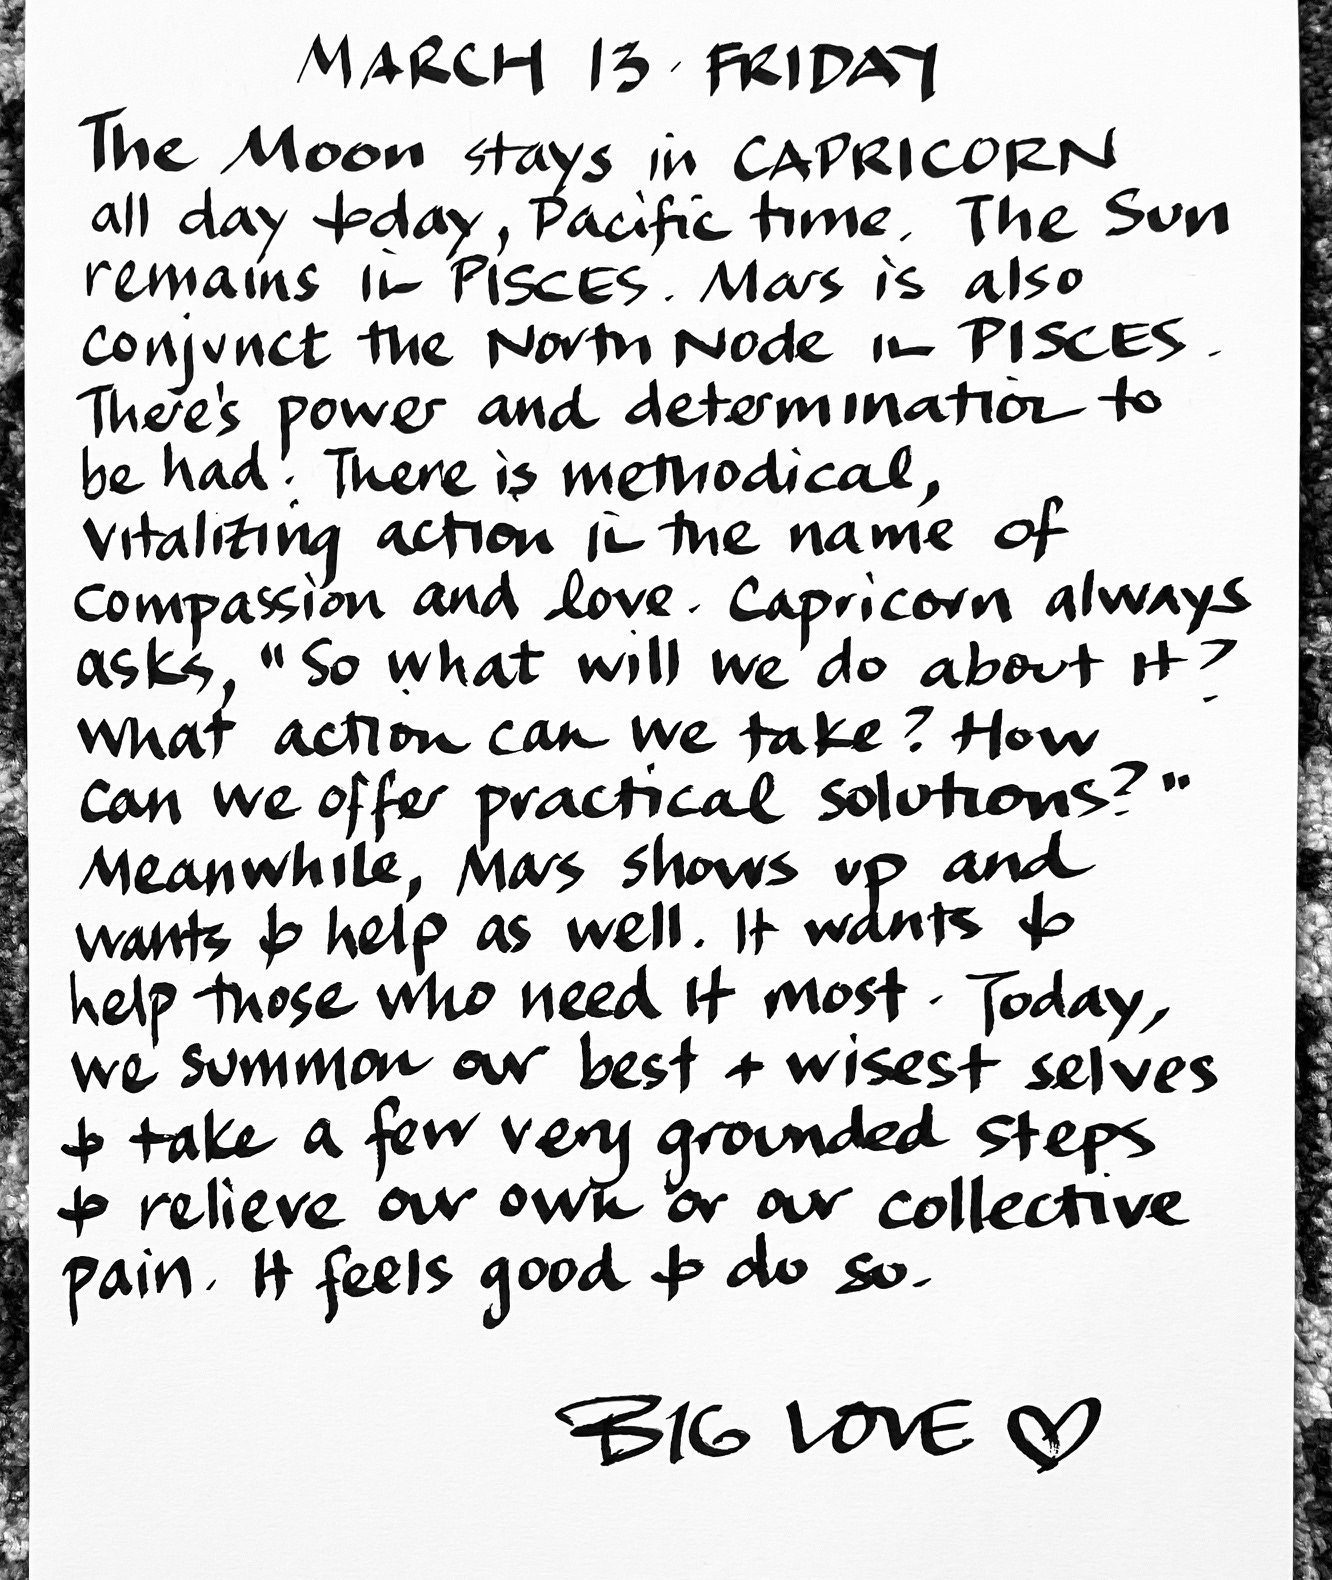 MARCH 13. FRIDAY
The Moon stays in CAPRICORN
all day today, Pacific time. The Sun
remains in PISCES. Mars is also
conjunct the North Node in PISCES.
There's power and determination to
be had. There is methodical,
vitalizing action in the name of
compassion and love. Capricorn always
asks, "So what will we do about it?
What action can we take? How
can we offer practical solutions?"
Meanwhile, Mars shows up and
wants to help as well. It wants to
help those who need it most. Today,
we summon our best + wisest selves
to take a few very grounded steps
to relieve our own or our collective
pain. It feels good to do so.
BIG LOVE ♡